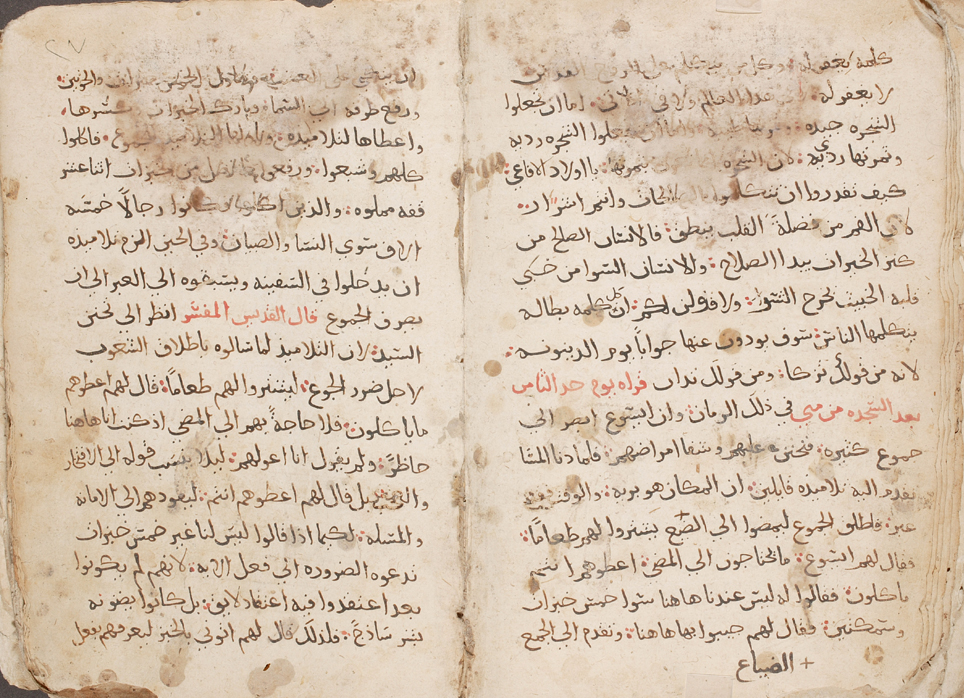 كلمه يغفر له وكل من يتكلم على الروح القدس
لا يغفر له لا في هدا العالم ولا في الاتي اما ان تجعلوا
الشجره جيده وتمرتها جيده واما ان تجعلوا الشجره رديه
وثمرتها رديه لان الشجره من ثمرتها يا اولاد الافاعي
كيف تقدروا ان تتكلموا بالصالحات وانتم اشرار
لان الفم من فضلة القلب ينطق فالانسان الصالح من
كنز الخيرات يبدا الصلاح والانسان السوا من
قلبه الخبيث يخرج الشرور ولا قولن لكم ان كل كلمه بطاله
يتكلمها الناس سوف يودون عنها جواباً يوم الدينونه
لانه من قولك تزكا ومن قولك تدان قراه يوم حد الثامن
بعد السجده من متي في ذلك الزمان وان ايسوع ابصر الي
جموع كثيره فتحنن عليهم وشفا امراضهم فلما دنا المسا
تقدم اليه تلاميذه قايلين ان المكان هو بريه والوقت
عبر فاطلق الجموع ليمضوا الي الضيع يشتروا لهم طعاماً
فقال لهم ايسوع ما يحتاجون الي المضي اعطوهم انتم
ياكلون فقالوا له ليس عندنا هاهنا سوا خمس خبزات
وسمكتين فقال لهم جيبوا بها هاهنا وتقدم الي الجمع
+ الضياع
٢٧
ان يتكي على العشب واخذ الخمس خبزات والحوتين
ورفع طرفه الي السما وبارك الخبزات وكسرها
واعطاها لتلاميذه والتلاميذ للجموع فاكلوا
كلهم وشبعوا ورفعوا ما فضل من الخبزات اثنا عشر
قفه مملوه والذين اكلوا كانوا رجالاً خمسه
الاف سوي النسا والصبيان وفي الحين الزم تلاميذه
ان يدخلوا في السفينه ويسبقوه الي العبر الي ان
يصرف الجموع قال القديس المفسر انظر الي تحنن
السيد لان التلاميذ لما سالوه باطلاق الشعوب
لاجل ضرر الجوع ليشتروا لهم طعاماً قال لهم اعطوهم
ما ياكلون فلا حاجةً بهم الي المضي اذ كنت انا هاهنا
حاظرً ولم يقول انا اعولهم ليلا ينسب قوله الي الافتخار
بل قال لهم اعطوهم انتم ليقودهم الي الامانه
والمسله لكيما اذا قالوا ليس لنا غير خمس خبزات
تدعوه الضروره الي فعل الايه لانهم لم يكونوا
بعد اعتقدوا فيه اعتقاد لايق بل كانوا يضنونه
بشر سادج فلذلك قال لهم اتوني بالخبز ليعرفهم بفعل